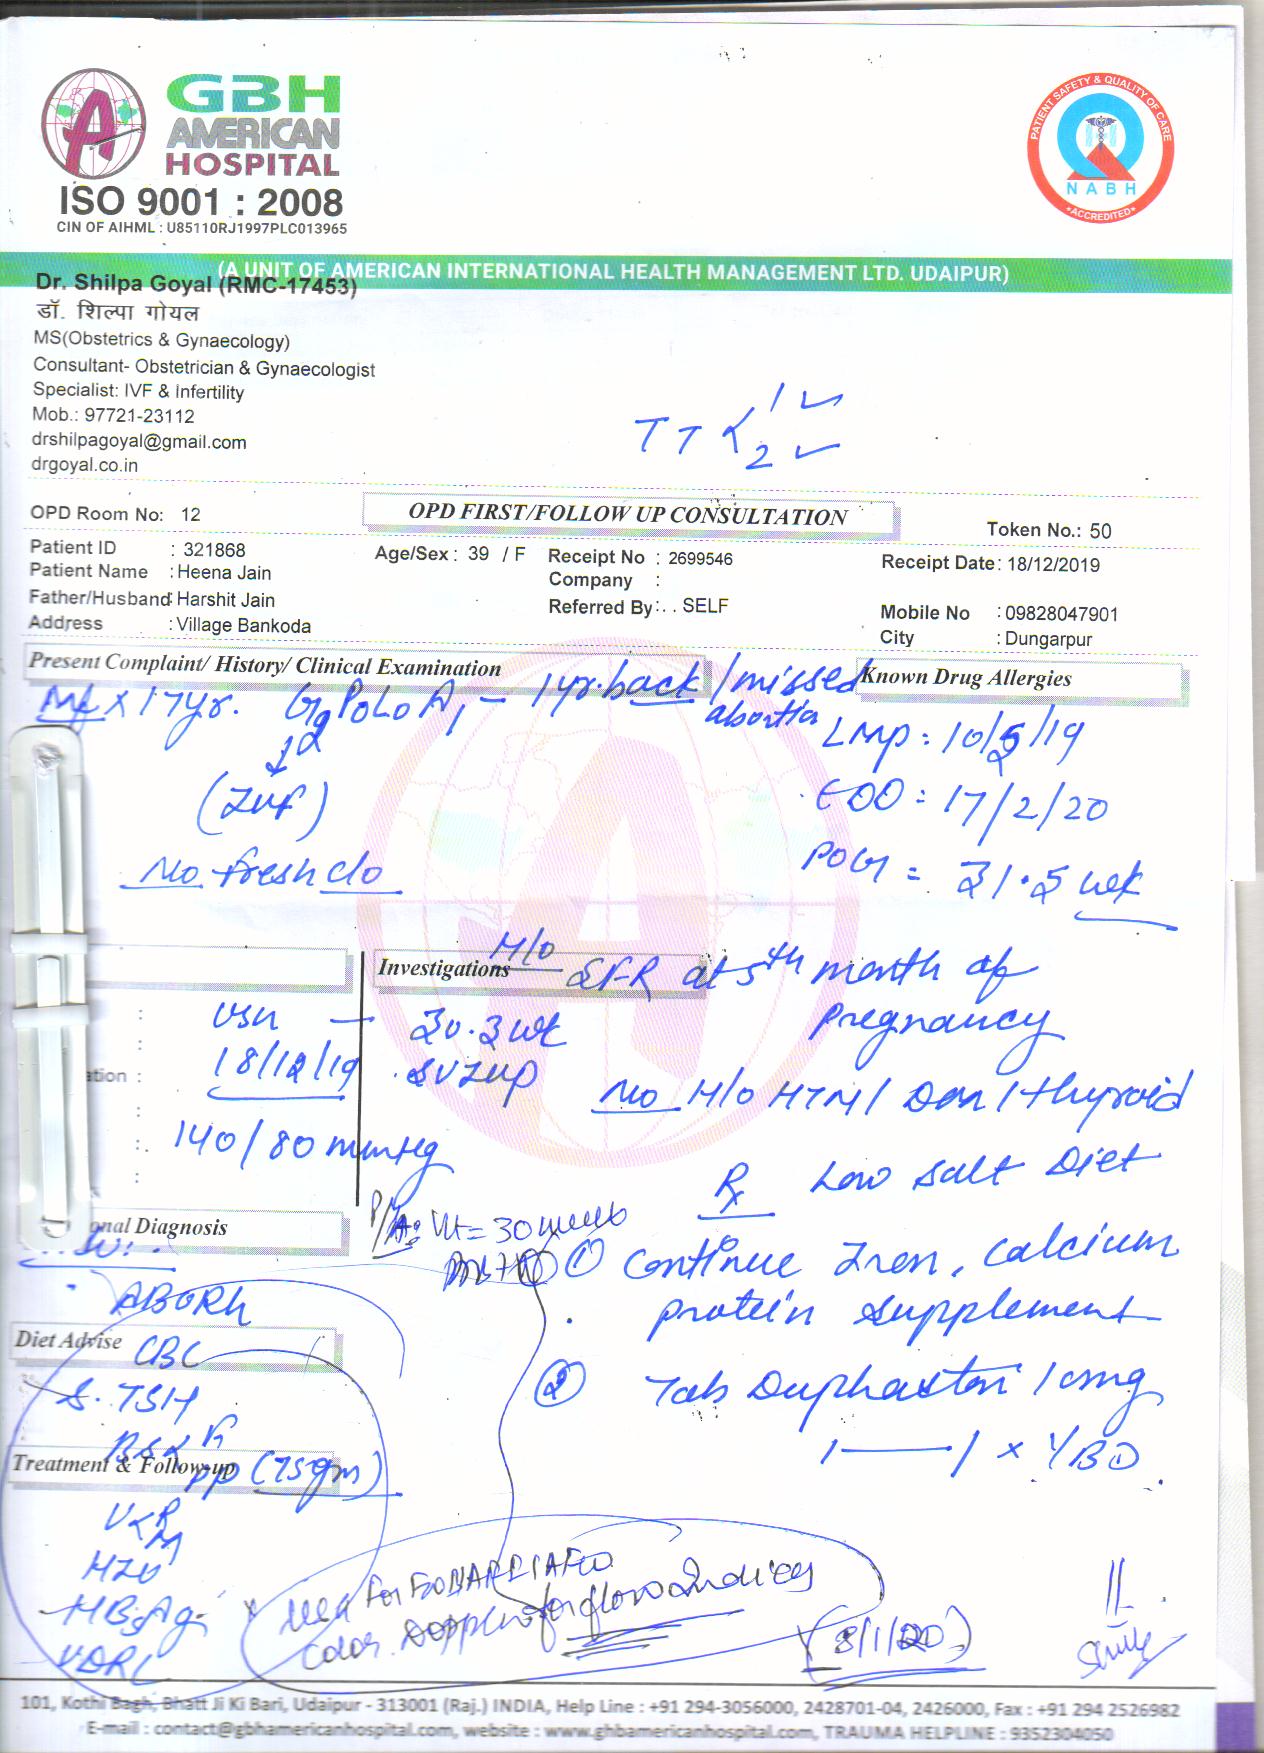 GBH
AMERICAN
HOSPITAL
ISO 9001 : 2008
CIN OF AIHML : U85110RJ1997PLC013965
PATIENT SAFETY & QUALITY OF CARE
NABH
ACCREDITED
(A UNIT OF AMERICAN INTERNATIONAL HEALTH MANAGEMENT LTD. UDAIPUR)
Dr. Shilpa Goyal (RMC-17453)
डॉ. शिल्पा गोयल
MS(Obstetrics & Gynaecology)
Consultant- Obstetrician & Gynaecologist
Specialist: IVF & Infertility
Mob.: 97721-23112
drshilpagoyal@gmail.com
drgoyal.co.in
TT < 1 ✓
2 ✓
OPD Room No: 12 OPD FIRST/FOLLOW UP CONSULTATION Token No.: 50
Patient ID : 321868 Age/Sex : 39 / F Receipt No : 2699546 Receipt Date: 18/12/2019
Patient Name : Heena Jain Company :
Father/Husband : Harshit Jain Referred By : . . SELF Mobile No : 09828047901
Address : Village Bankoda City : Dungarpur
Present Complaint/ History/ Clinical Examination Known Drug Allergies
x 17yr. G2P0L0A1 - 1yr.back/missed abortion
LMP: 10/5/19
(IVF)
EDD = 17/2/20
No fresh c/o
POG = 31.5 wk
Investigations H/o SFR at 5th month of pregnancy
USG - 30.3 wk
18/12/19
No H/o HTN/ DM/thyroid
ation :
140/80 mmHg
Rx Low Salt Diet
onal Diagnosis
P/A: Ut = 30 weeks
① Continue Iron, Calcium
protein supplement
ABORh
Diet Advise CBC
② Tab Duphaston 10mg
S. TSH
1 — 1 x BD
BS < F
Treatment & Follow-up PP (75gm)
U < R
M
HIV
HBsAg
Color Doppler for flow indices
VDRL
(8/1/20)
101, Kothi Bagh, Bhatt Ji Ki Bari, Udaipur - 313001 (Raj.) INDIA, Help Line : +91 294-3056000, 2428701-04, 2426000, Fax : +91 294 2526982
E-mail : contact@gbhamericanhospital.com, website : www.ghbamericanhospital.com, TRAUMA HELPLINE : 9352304050